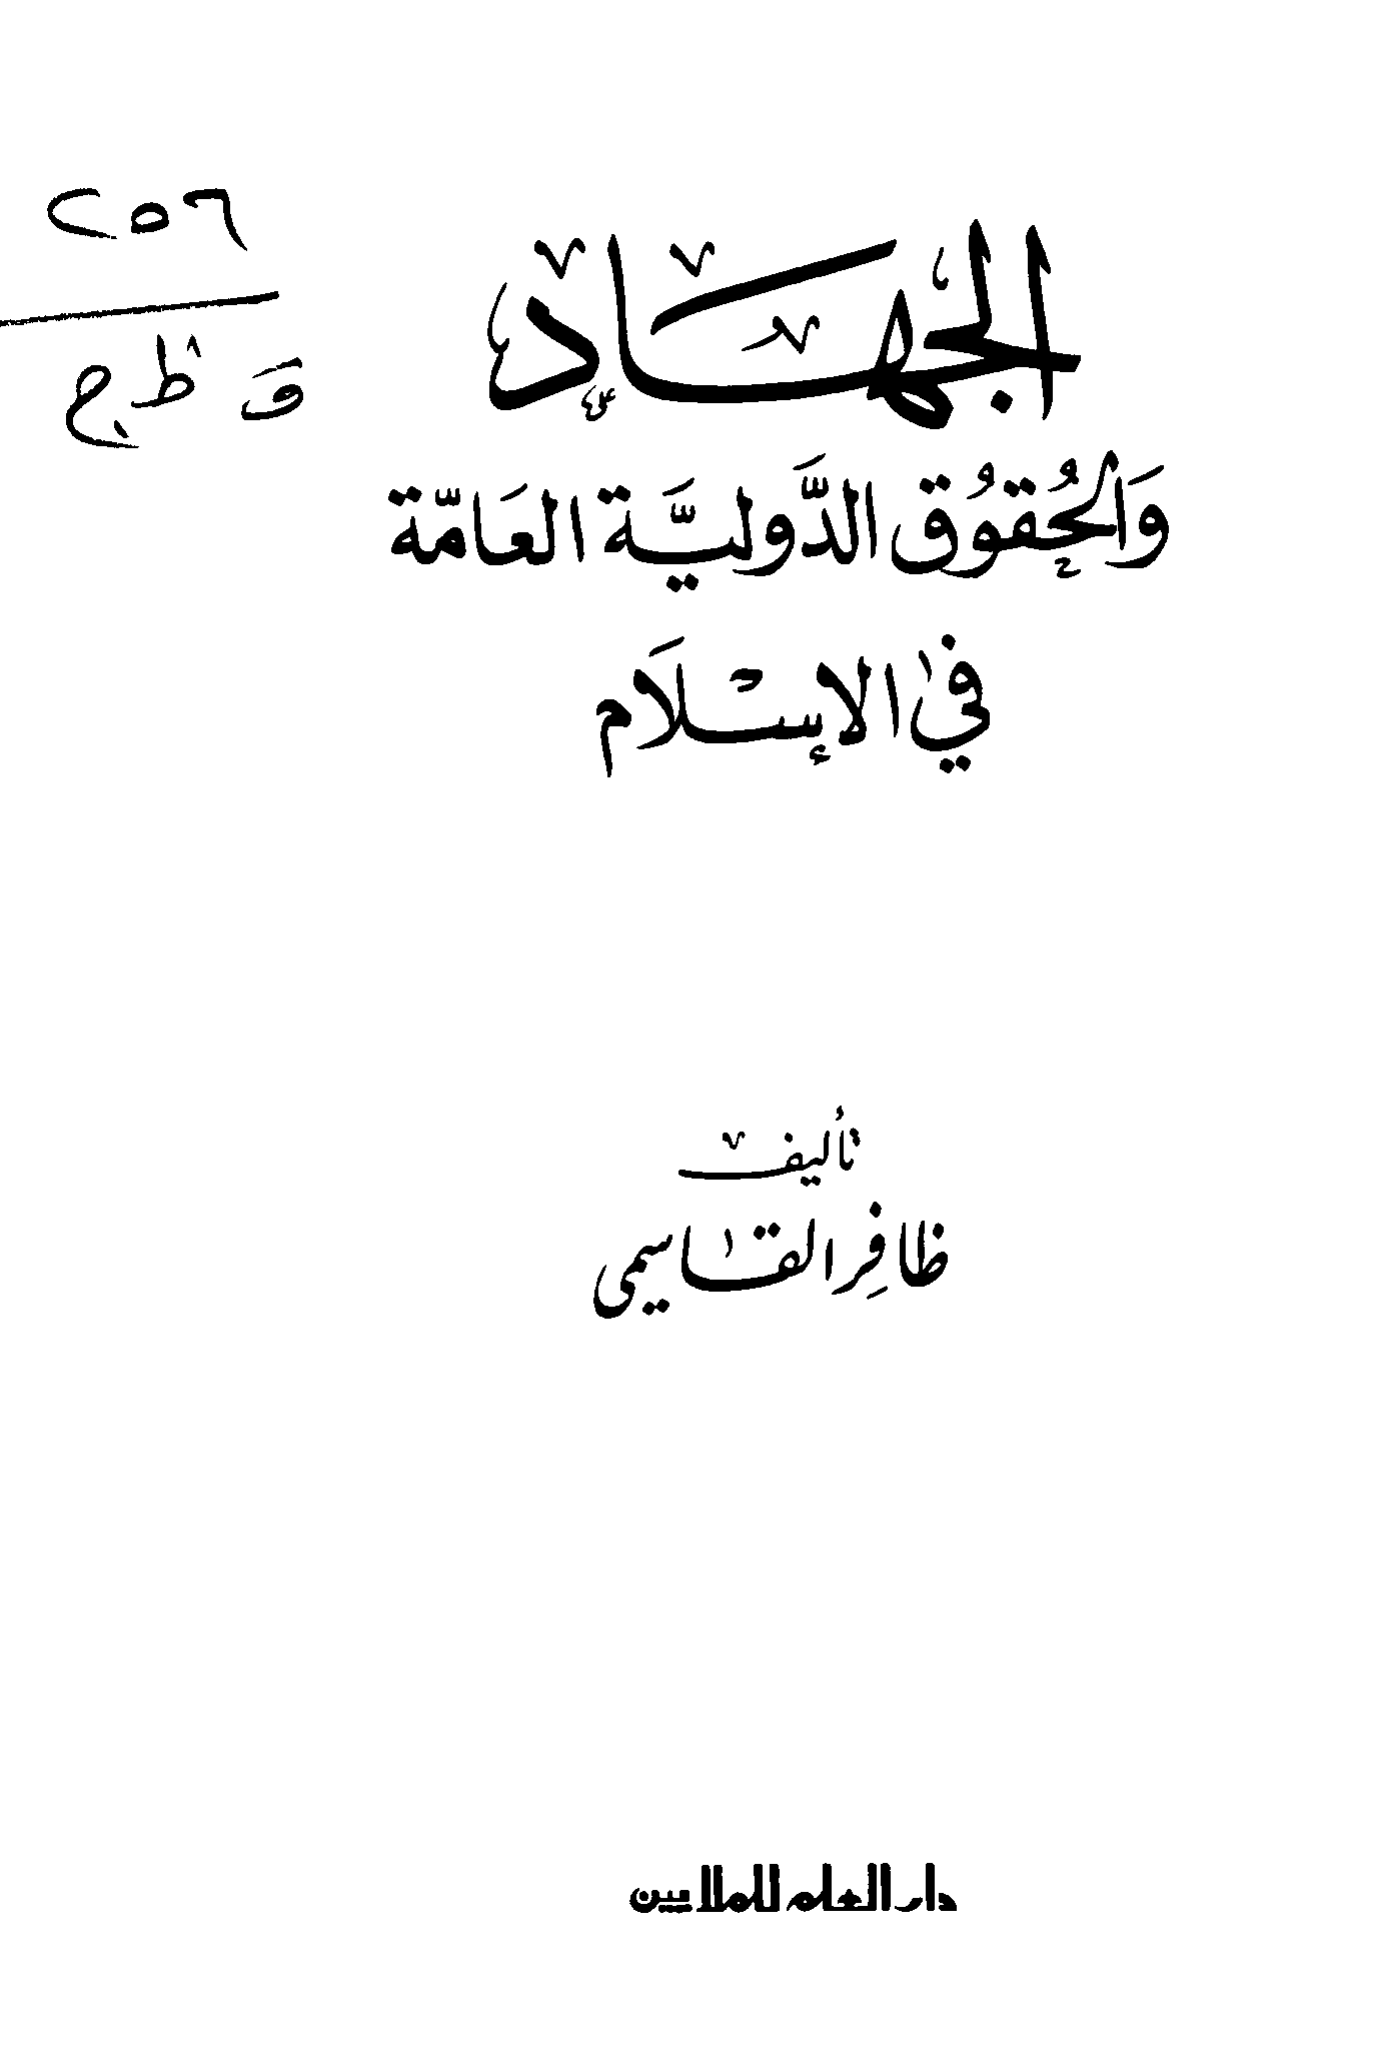 ٢٥٦
ق ظ ج
الجهاد
وَالحُقوُق الدَّوليَّة العَامّة
في الإسْلَام
تأليف
ظافِر القاسمي
دار العلم للملايين